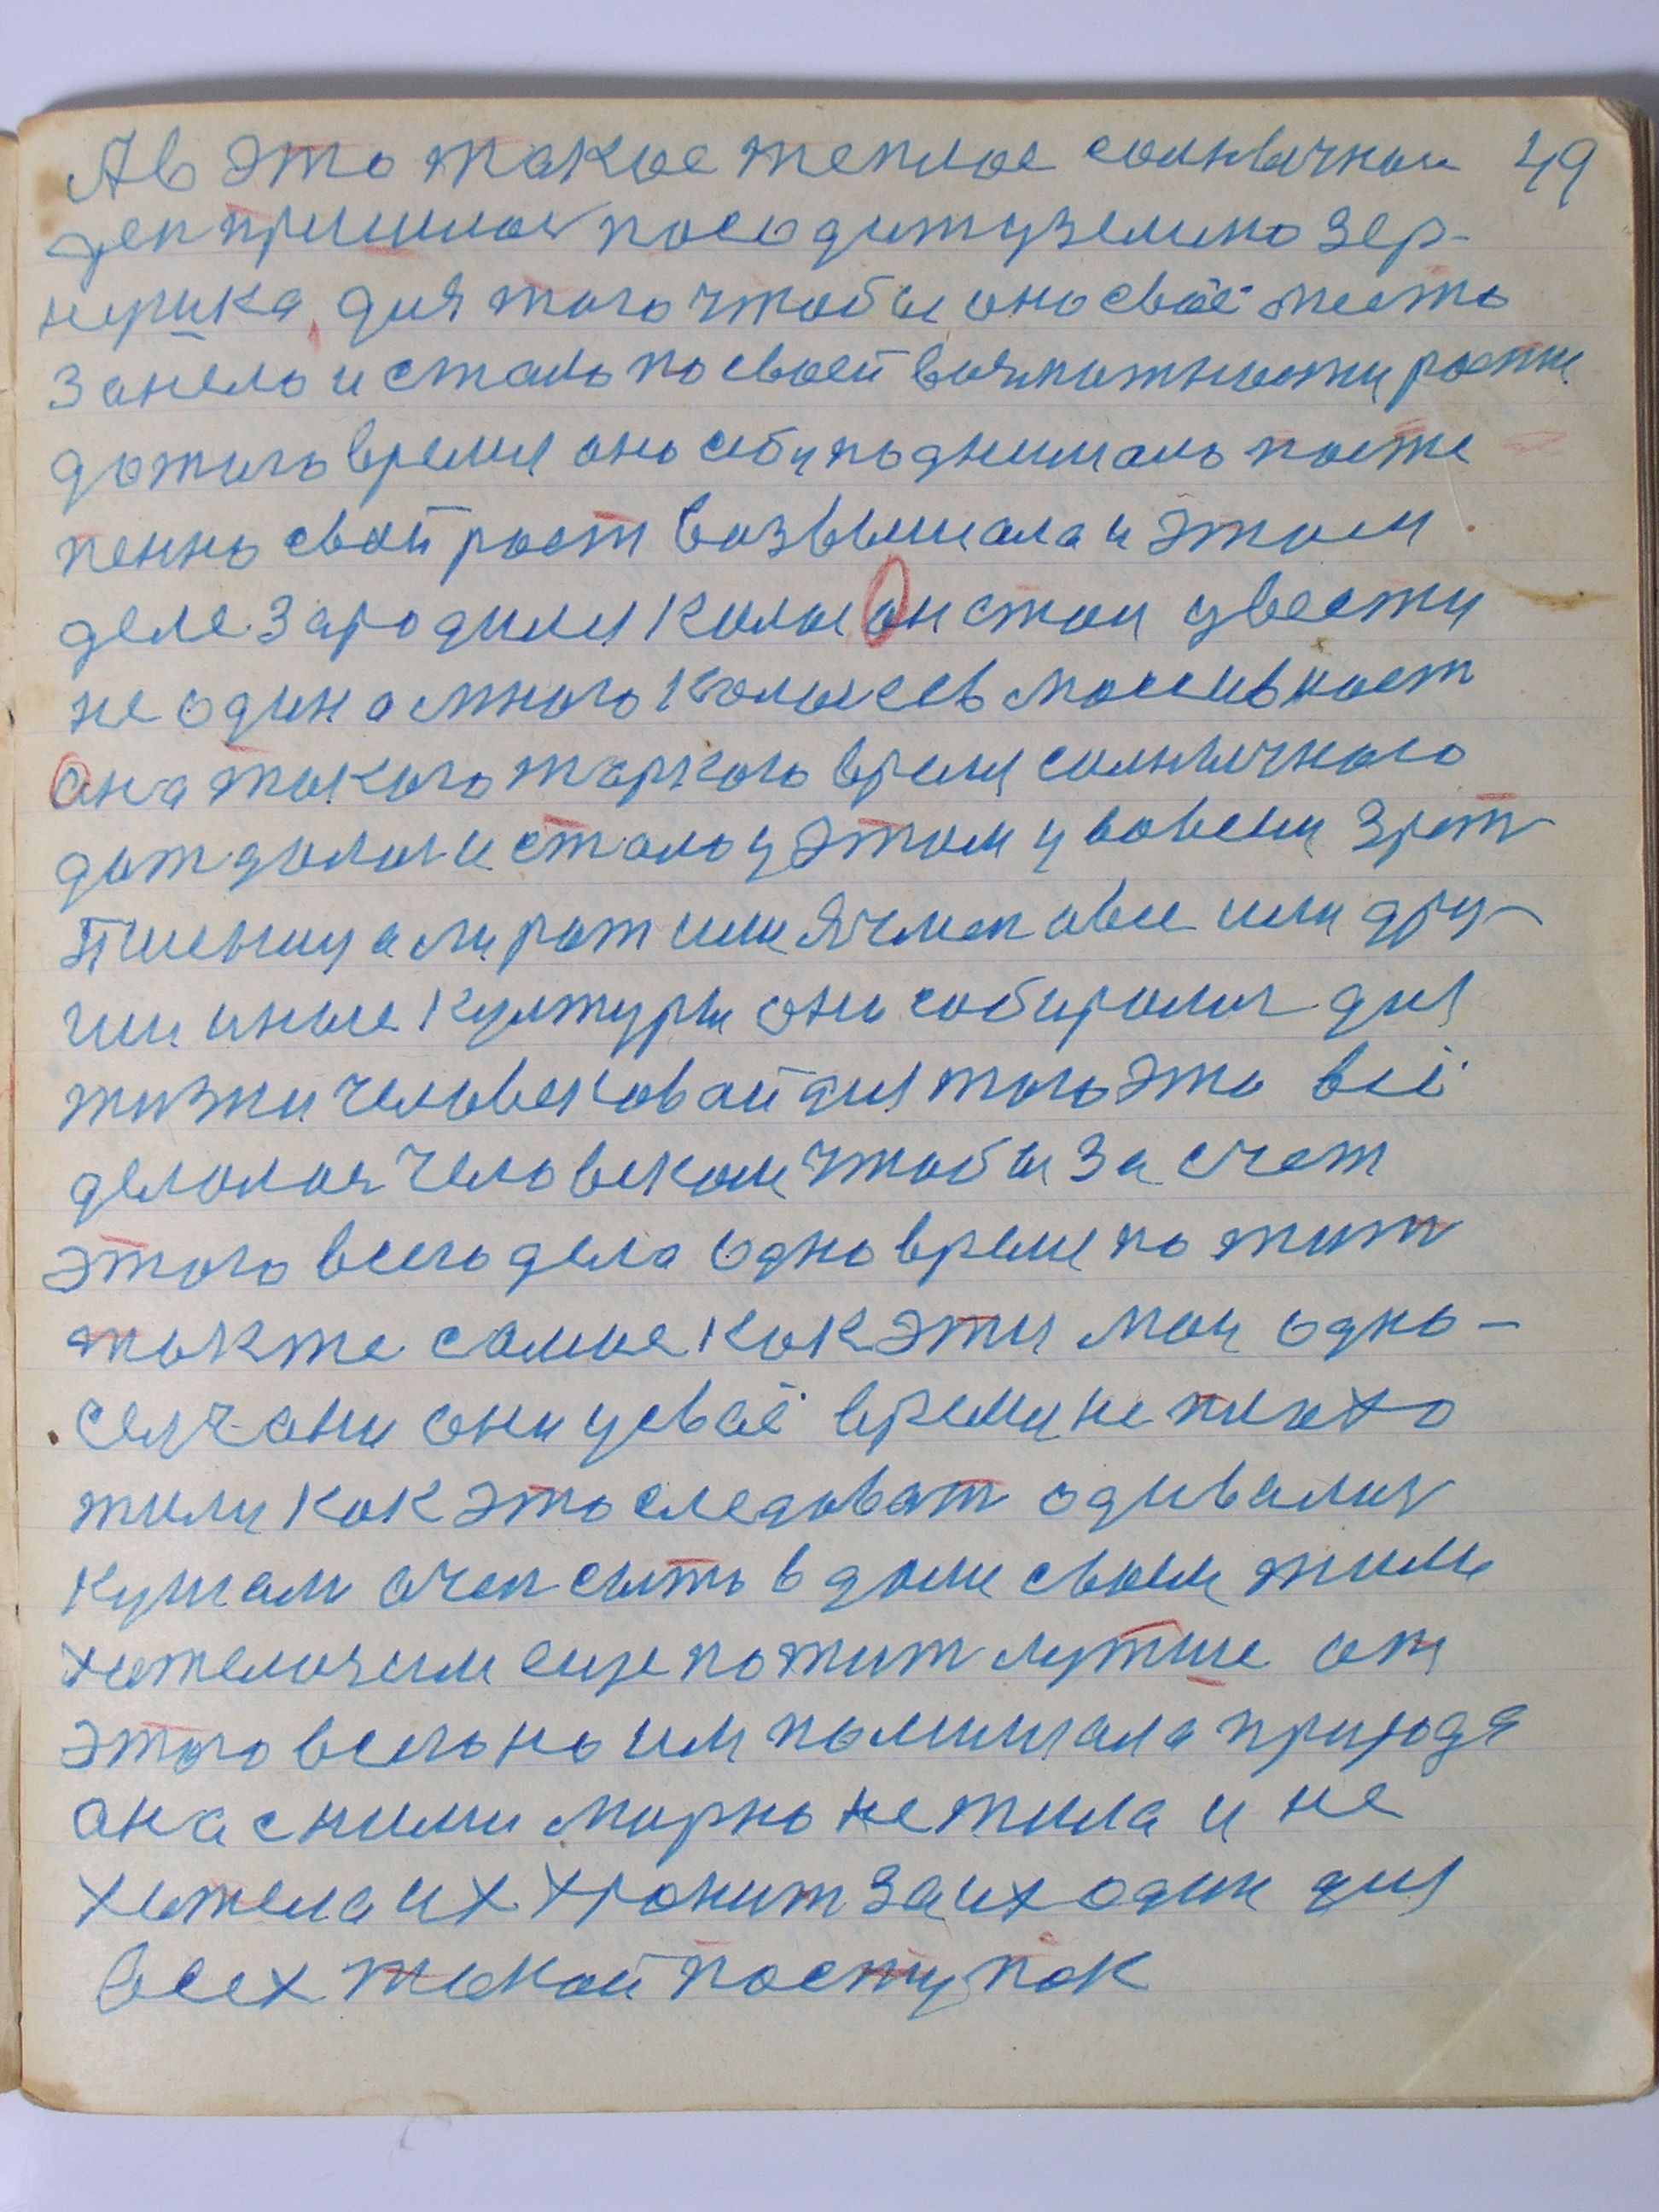 Ав это такое теплое солнычном 49
ден пришлося посодит уземлю зер-
нушка для того чтобы оно своё место
занело и стало по своей возможности рости
до того время оно себя поднимало посте
пенно свой рост возвышала и этом
деле зародился колос он стои цвести
не один а много колосьев
она такого жаркого время солнычного
дождолась и стало у этом у зрет
Пшеница ли рож или ячмен овес или дру-
гии иные културы они собиролис для
жизни человековай для того это всё
делолося человеком чтобы за счет
этого всего дела одно время пожит
также самое как эти мои одно-
селчани они у своё время не плохо
жили как это следоват одивалися
кушали очен сыто в доме своем жили
хотелося им еще пожит лутше от
этого всего но им помишала природа
она с ними мирно не жила и не
хотела их хронит за их один для
всех такой поступок